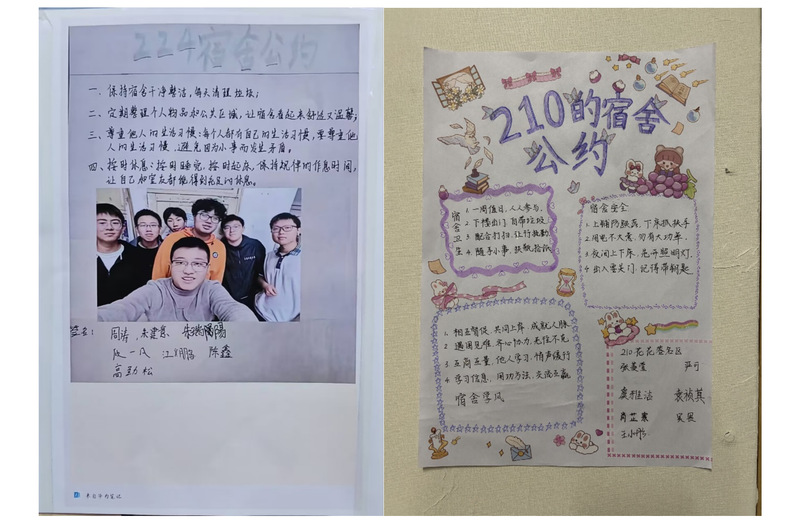 224宿舍公约
一、保持宿舍干净整洁,每天清理垃圾;
二、定期整理个人物品和公共区域,让宿舍看起来舒适又温馨;
三、尊重他人的生活习惯:每个人都有自己的生活习惯,要尊重他
人的生活习惯,避免因为小事而发生矛盾。
四、按时休息:按时睡觉,按时起床,保持规律的作息时间,
让自己和室友都能得到充足的休息。
签名:
周涛
陈鑫
高劲松
210的宿舍
公约
宿舍卫生
1 一周值日,人人参与
2 下楼出门,自带垃圾
3 配合打扫,让行我勤
4 随手小事
宿舍安全
1 上铺防跌落,下床抓扶手
2 用电不大意,勿有大功率
3 夜间上下床,先开照明灯
4 出入要关门,记得带钥匙
1 相互督促,共同上岸,成就人脉
2 遇困见难,齐心协力,无往不克
3 互商互量,他人学习,悄声缓行
4 学习信息,用功方法,交流共赢
宿舍学风
210花花签名区